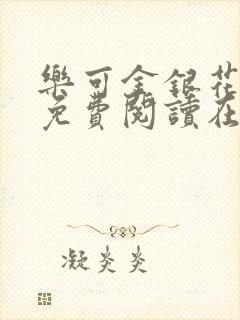 樂可金銀花
免費閱讀在
凝炎炎